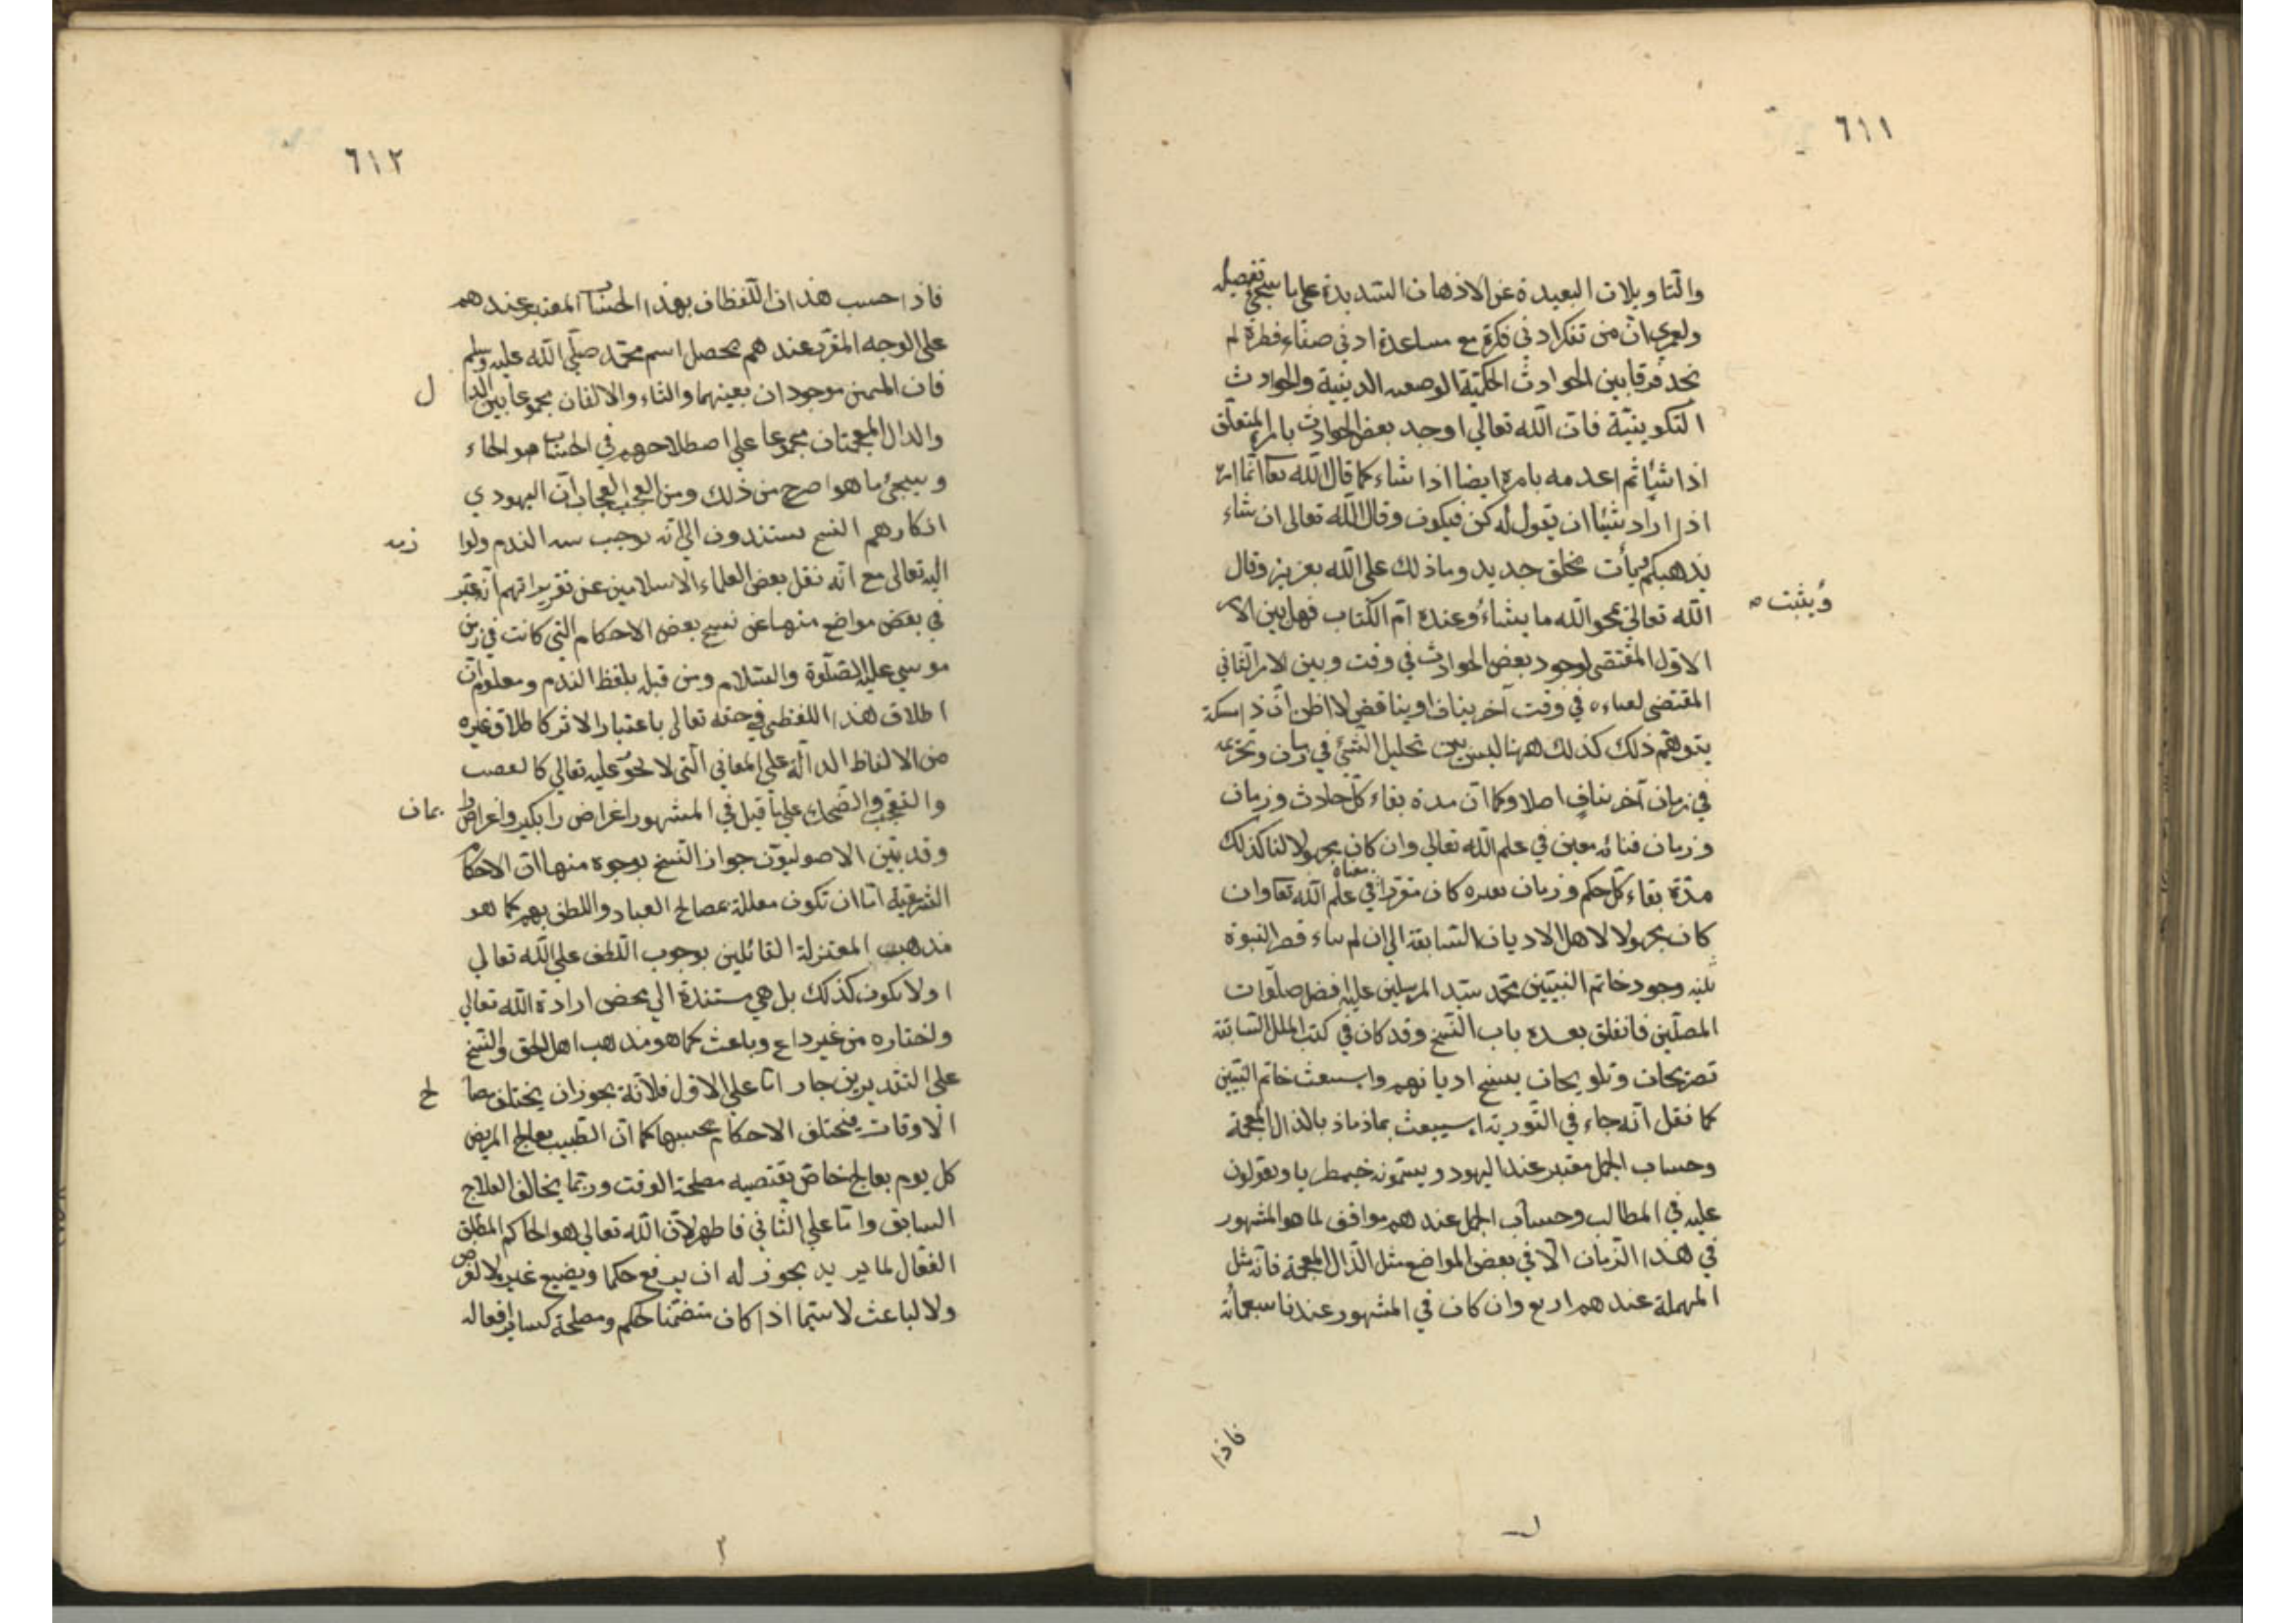 ٦١١
والتاويلات البعيدة عن الاذهان الشديدة على ما سيجئ تفصيله
ولعمري ان من تفكر ادنى فكرة مع مساعدة ادنى صفاء فطرة لم
يجد فرقا بين الحوادث الحكمية الوضعيه الدينية والحوادث
التكوينية فان الله تعالى اوجد بعض الحوادث بامره المتعلق
اذا شاء ثم اعدمه بامره ايضا اذا شاء كما قال الله تعا انما امره
اذا اراد شيئا ان يقول له كن فيكون وقال الله تعالى ان شاء
يذهبكم ويأت بخلق جديد وما ذلك على الله بعزيز وقال
الله تعالى يمحو الله ما يشاء وعنده ام الكتاب فهل بين الامر
ويثبت
الاول المقتضى لوجود بعض الحوادث في وقت وبين الامر الثاني
المقتضى لفناءه في وقت آخر تناف او يناقض لا اظن ان ذا مسكة
يتوهم ذلك كذلك ههنا ليس بين تحليل الشئ في زمان وتحريمه
في زمان آخر تناف اصلا وكما ان مدة بقاء كل حادث وزمان
وزمان فنائه معين في علم الله تعالى وان كان مجهولا لنا كذلك
مدة بقاء كل حكم وزمان تغيره كان مقررا في علم الله تعا وان
كان مجهولا لاهل الاديان السابقة الى ان لم بناء قصر النبوة
وجود خاتم النبيين محمد سيد المرسلين عليه افضل صلوات
المصلين فانغلق بعده باب النسخ وقد كان في كتب الملل السابقة
تصريحات وتلويحات بنسخ اديانهم خاتم النبيين
كما نقل انه جاء في التورية سيبعث بماذماذ بالذال المعجمة
وحساب الجمل معتبر عند اليهود ويسمونه ويعولون
عليه في المطالب وحساب الجمل عندهم موافق لما هو المشهور
في هذا الزمان الا في بعض المواضع مثل الذال المعجمة فانه مثل
المهملة عندهم اربع وان كان في المشهور عندنا سبعمأئة
فاذا
٦١٢
فاذا حسب هذان اللفظان بهذا الحساب المعتبر عندهم
على الوجه المقرر عندهم يحصل اسم محمد صلى الله عليه وسلم
فان الميمين موجودان بعينهما والثاء والالفان مجموعا بين الدا
ل
والدال المعجمتان مجموعا على اصطلاحهم في الحساب هو الحاء
وسيجئ ما هو اصرح من ذلك ومن العجب العجاب ان اليهود في
انكارهم النسخ يستندون الى انه يوجب الندم ولوا
زمه
اليه تعالى مع انه نقل بعض العلماء الاسلامين عن تقريراتهم انه عبر
في بعض مواضع منها عن نسخ بعض الاحكام التي كانت في زمن
موسى عليه الصلوة والسلام ومن قبله بلفظ الندم ومعلوم ان
اطلاق هذا اللفظ في حقه تعالى باعتبار الاثر كاطلاق غيره
من الالفاظ الدالة على المعاني التي لا تجوز عليه تعالى كالغضب
والتعجب والضحك على ما قيل في المشهور اغراض را بكير واغراض را
بمان
وقد بين الاصوليون جواز النسخ بوجوه منها ان الاحكام
الشرعية اما ان تكون معللة بمصالح العباد واللطف بهم كما هو
مذهب المعتزلة القائلين بوجوب اللطف على الله تعالى
او لا يكون كذلك بل هي مستندة الى محض ارادة الله تعالى
واختياره من غير داع وباعث كما هو مذهب اهل الحق والنسخ
على التقديرين جاز اما على الاول فلانه يجوز ان يختلف مصا
لح
الاوقات فيختلف الاحكام بحسبها كما ان الطبيب يعالج المريض
كل يوم بعالج خاص يقتضيه مصلحة الوقت وربما يخالف العلاج
السابق واما على الثاني فاظهر لان الله تعالى هو الحاكم المطلق
الفعال لما يريد يجوز له ان يرفع حكما ويضع غيره لا لغرض
ولا لباعث لا سيما اذا كان متضمنا حكم ومصلحة كساير افعاله